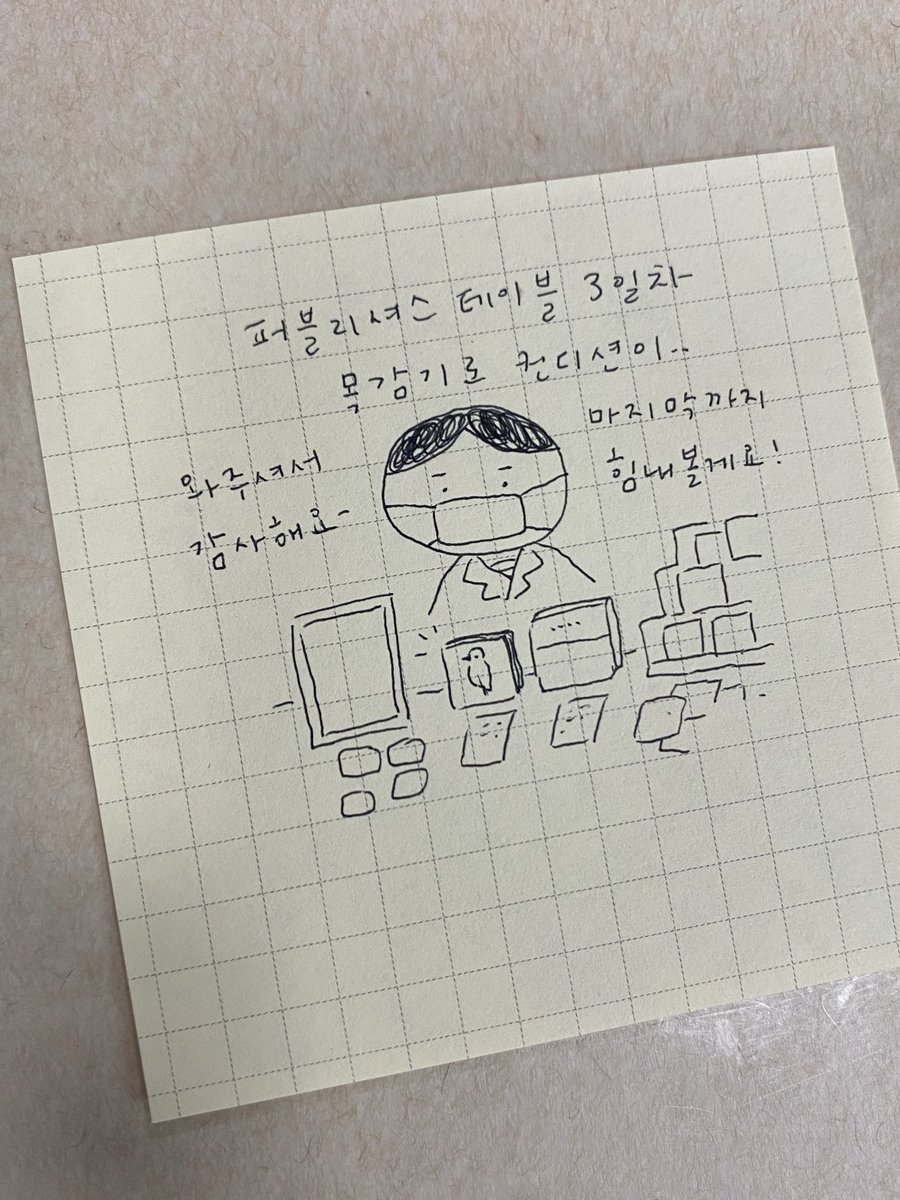 퍼블리셔스 테이블 3일차
목감기로 컨디션이..
와주셔서
감사해요~
마지막까지
힘내볼게요!